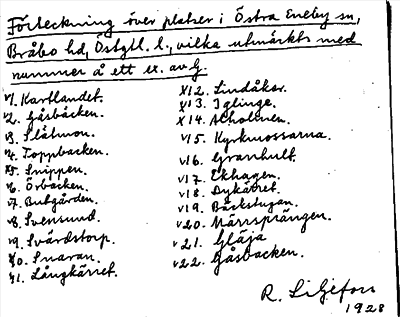 Förteckning över platser i Östra Eneby sn,
Bråbo hd, Östgtl. l., vilka utmärkts med
nummer å ett ex. av G.
v1. Kartlandet.
v2. Gåsbacken.
v3. Slåtmon.
v4. Toppbacken.
v5. Snippen.
v6. Örbacken.
v7.
v8. Svensund.
v9. Svärdstorp.
v10. Snaran.
v11. Långkärret.
x12. Lindåker.
x13. Iglinge.
x14. Alholmen.
v15. Kyrkmossarna.
v16. Granhult.
v17. Ekhagen.
v18. Dykärret.
v19. Bäckstugan.
v20. Märrsprängen.
v21. Gläja
v22. Gåsbacken.
R. Liljefors
1928